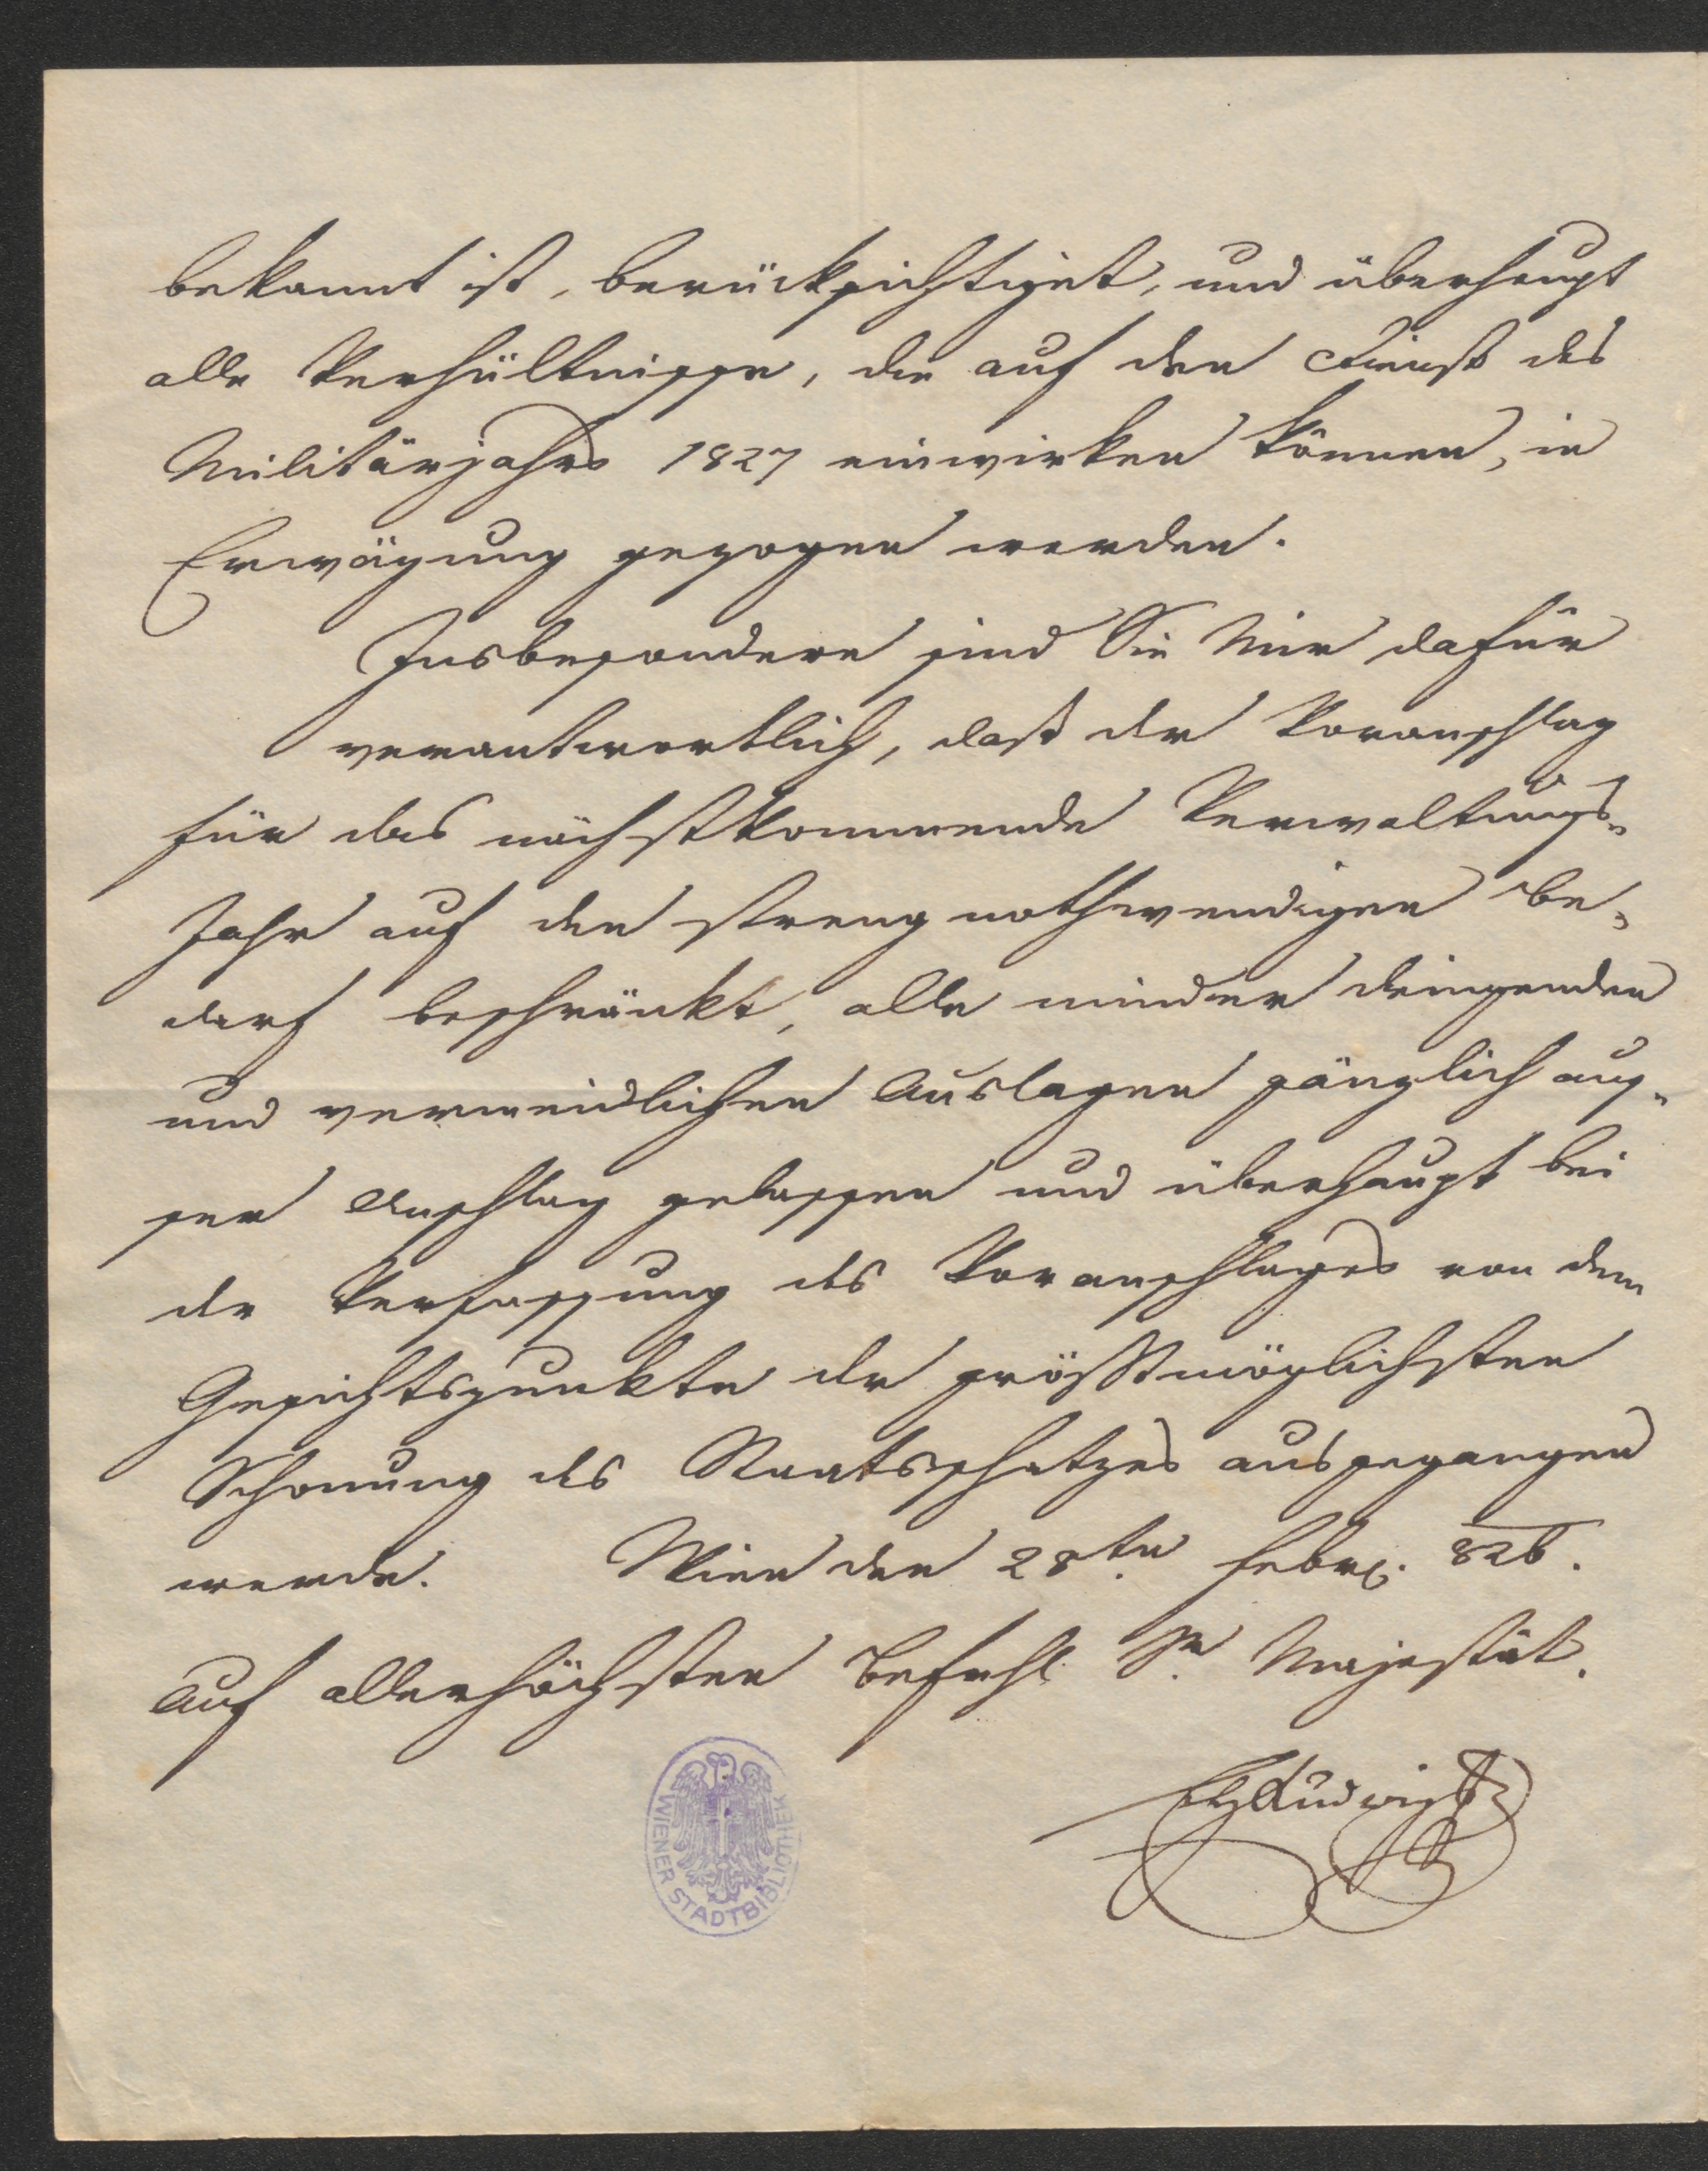 bekannt ist, berücksichtiget, und überhaupt
alle Verhältnisse, die auf den Dienst des
Militärjahrs 1827 einwirken können, in
Erwägung gezogen werden.
Insbesondere sind Sie Mir dafür
verantwortlich, daß der Voranschlag
für das nächstkommende Verwaltungs-
Jahr auf den streng nothwendigen Be-
darf beschränkt, alle minder dringenden
und vermeidlichen Auslagen gänzlich aus-
ser Anschlag gelassen und überhaupt bei
der Verfassung des Voranschlages von dem
Gesichtspunkte der größtmöglichsten
Schonung des Staatsschatzes ausgegangen
werde. Wien den 28ten Febr. 826.
Auf allerhöchsten Befehl Sr Majestät.
EhLudwig
WIENER STADTBIBLIOTHEK